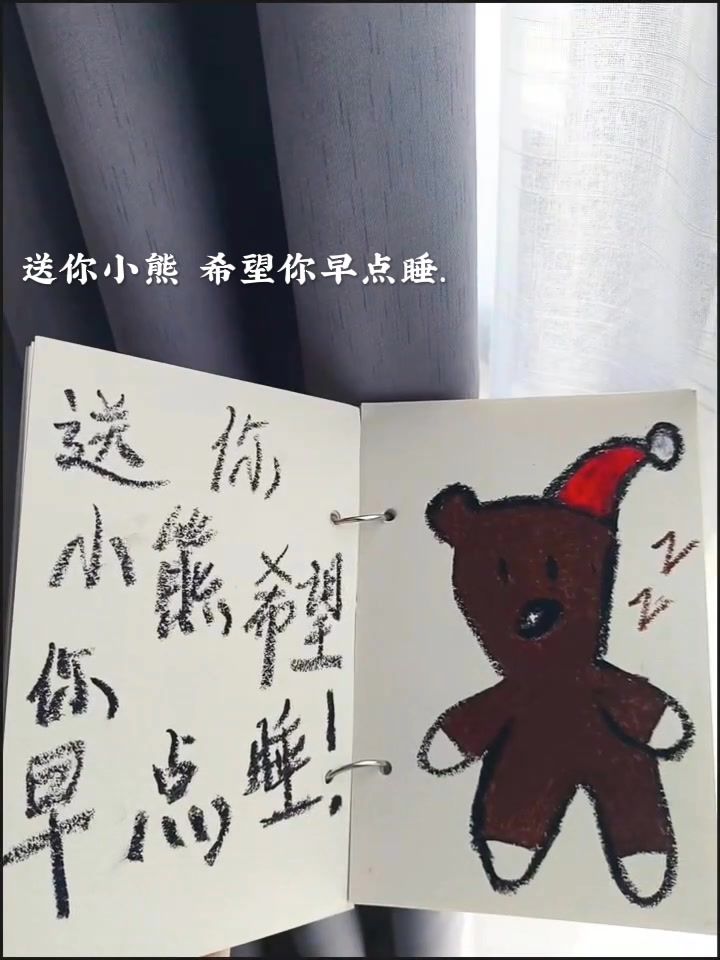 送你小熊 希望你早点睡.
送你
小熊希望
你
早点睡!
zz